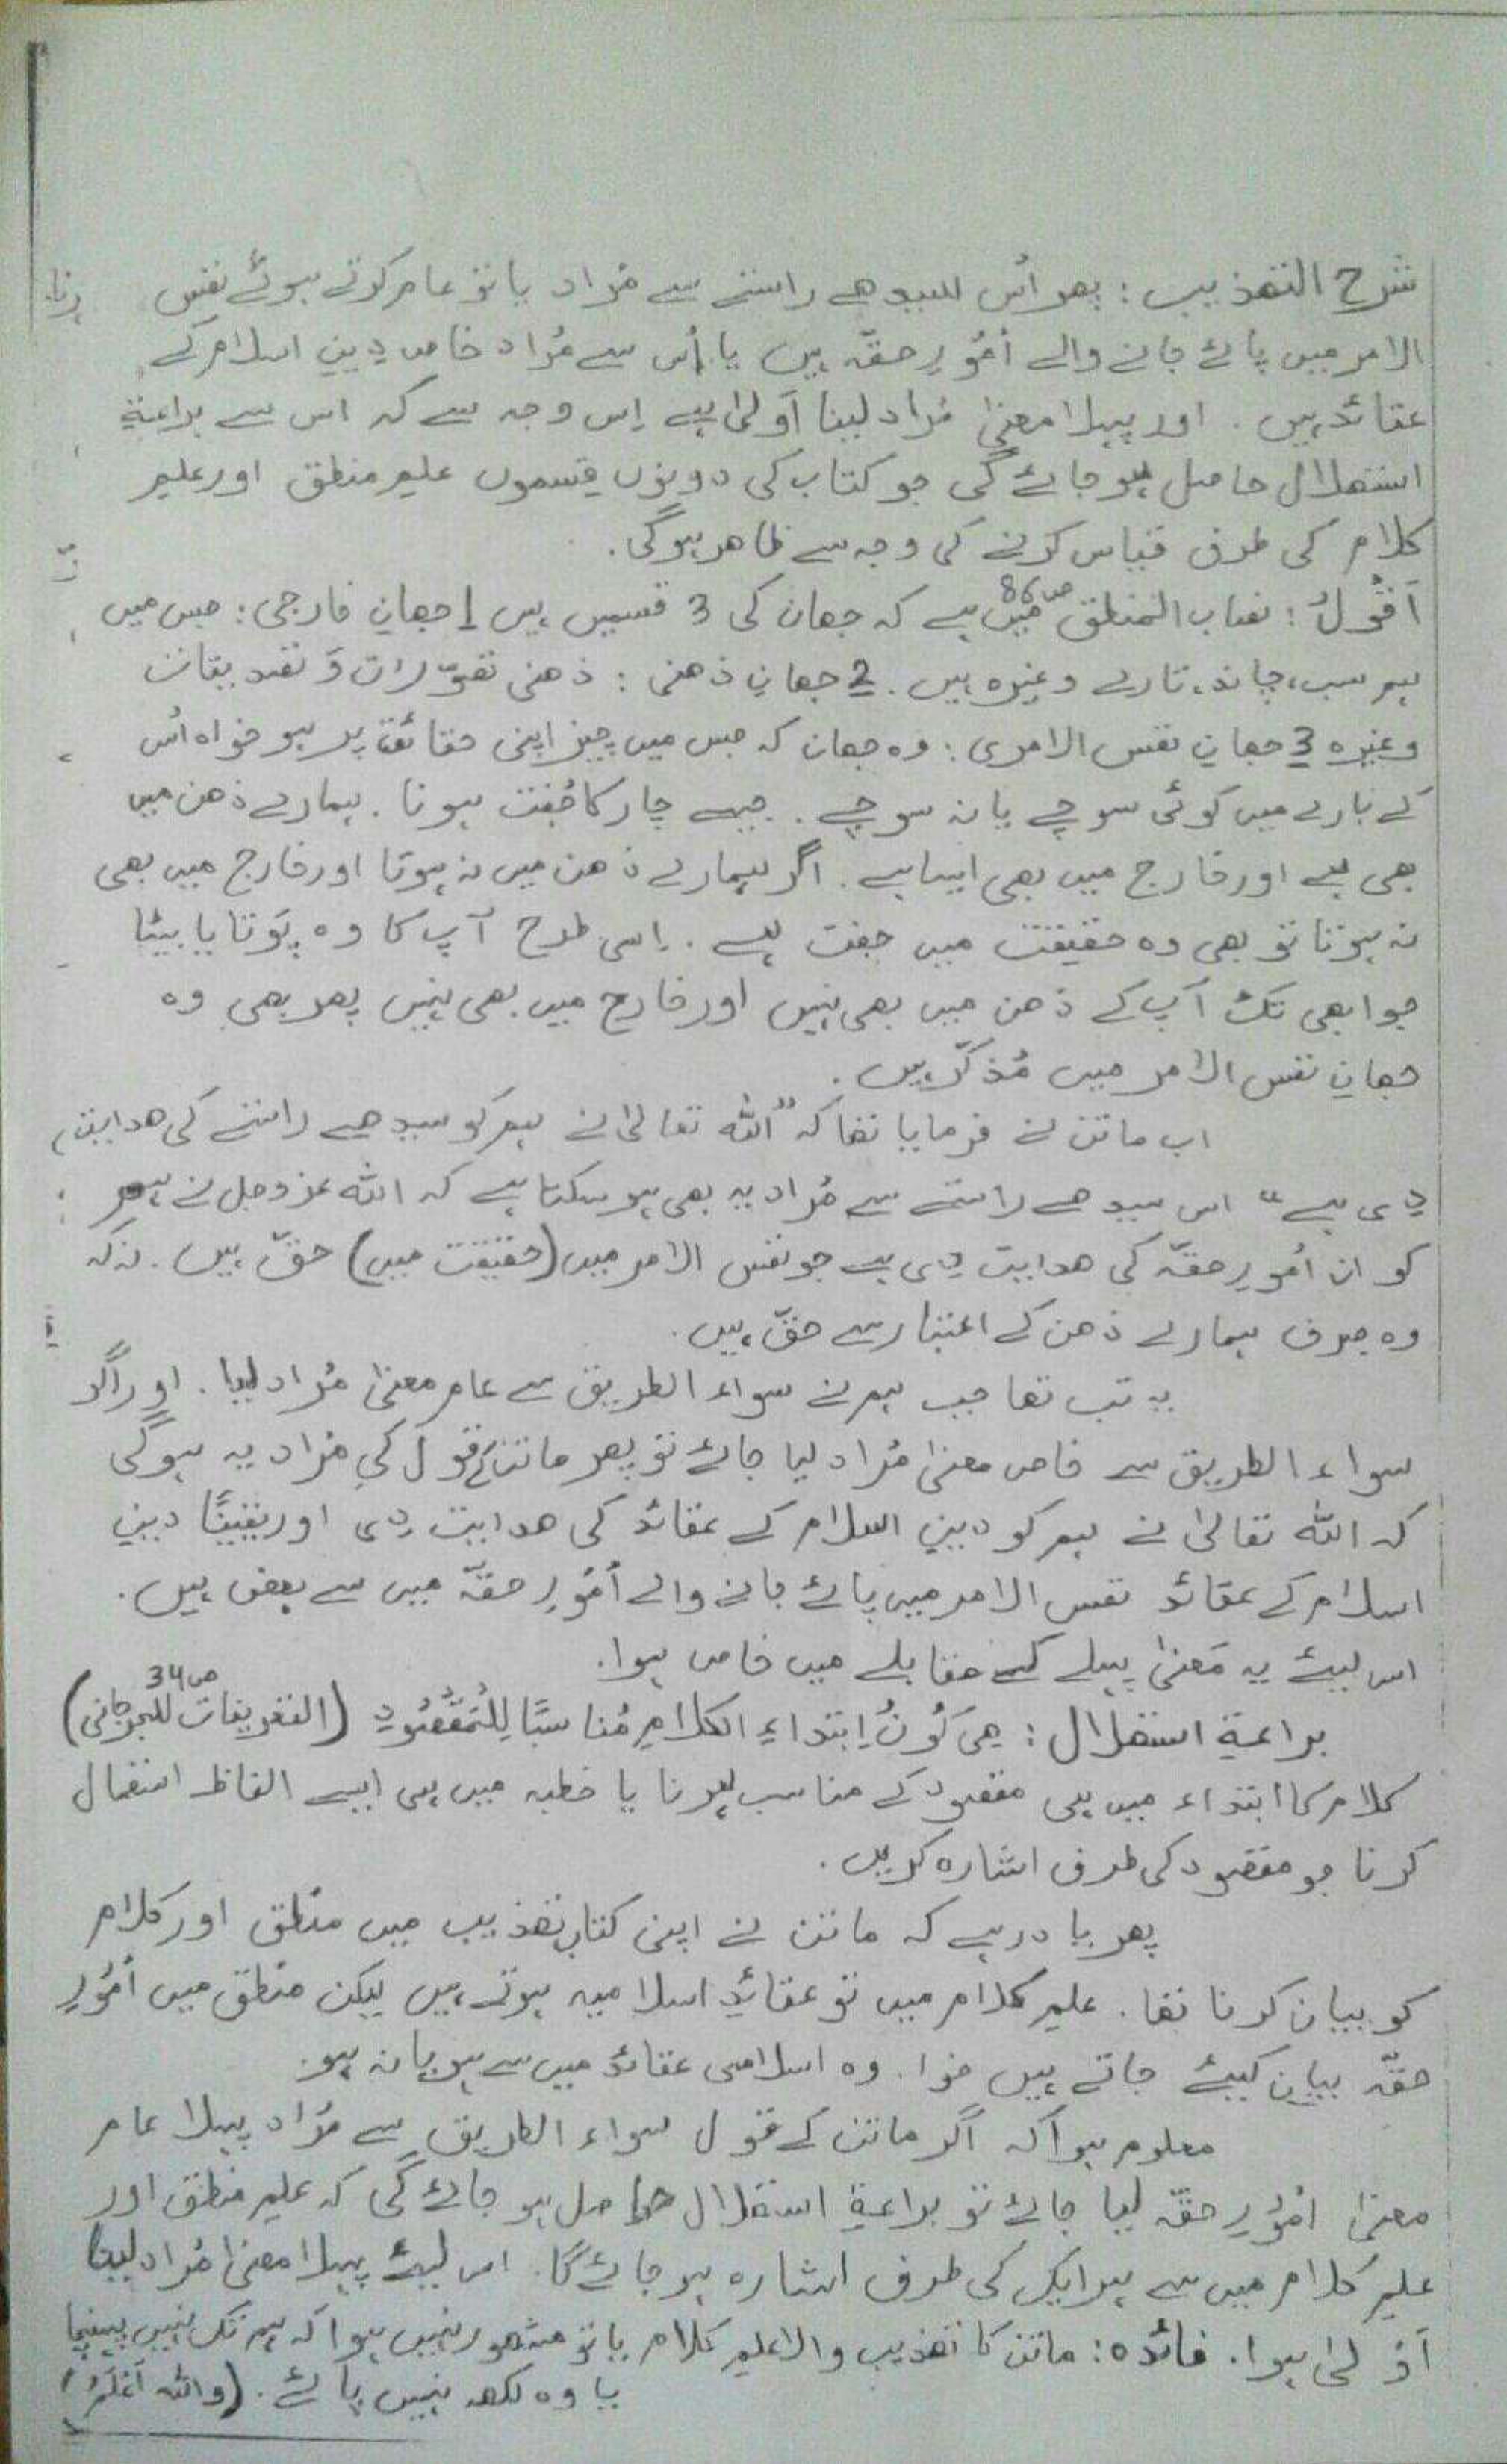 شرح التھذیب : پھر اُس سیدھے راستے سے مُراد یا تو عام کرتے ہوئے نفس
الامر میں پائے جانے والے اُمُورِ حقّہ ہیں یا اُس سے مُراد خاص دینِ اسلام کے
عقائد ہیں ۔ اور پہلا معنیٰ مُراد لینا اَولیٰ ہے اِس وجہ سے کہ اس سے براعۃِ
استھلال حاصل ہو جائے گی جو کتاب کی دونوں قِسموں علمِ منطق اور علمِ
کلام کی طرف قیاس کرنے کی وجہ سے ظاھر ہوگی ۔
اَقُولُ : نصاب المنطق ص86 میں ہے کہ جھان کی 3 قسمیں ہیں 1 جھانِ خارجی : جس میں
ہم سب، چاند، تارے وغیرہ ہیں ۔ 2 جھانِ ذھنی : ذھنی تصوّرات وَ تصدیقات
وغیرہ 3 جھانِ نفس الامری : وہ جھان کہ جس میں چیز اپنی حقائق پر ہو خواہ اُس
کے بارے میں کوئی سوچے یا نہ سوچے ۔ جیسے چار کا جُفت ہونا ۔ ہمارے ذھن میں
بھی ہے اور خارج میں بھی ایسا ہے ۔ اگر ہمارے ذھن میں نہ ہوتا اور خارج میں بھی
نہ ہوتا تو بھی وہ حقیقت میں جفت ہے ۔ اِسی طرح آپ کا وہ پَوتا یا بیٹا
جو ابھی تک آپ کے ذھن میں بھی نہیں اور خارج میں بھی نہیں پھر بھی وہ
جھانِ نفس الامر میں مُذکّر ہیں ۔
اب ماتن نے فرمایا تھا کہ "اللہ تعالیٰ نے ہم کو سیدھے راستے کی ھدایت
دی ہے" اس سیدھے راستے سے مُراد یہ بھی ہو سکتا ہے کہ اللہ عزوجل نے ہم
کو ان اُمُورِ حقّہ کی ھدایت دی ہے جو نفس الامر میں (حقیقت میں) حقّ ہیں ۔ نہ کہ
وہ صرف ہمارے ذھن کے اعتبار سے حقّ ہیں ۔
یہ تب تھا جب ہم نے سواء الطریق سے عام معنیٰ مُراد لیا ۔ اور اگر
سواء الطریق سے خاص معنیٰ مُراد لیا جائے تو پھر ماتن کے قول کی مُراد یہ ہوگی
کہ اللہ تعالیٰ نے ہم کو دینِ اسلام کے عقائد کی ھدایت دی اور یقینًا دینِ
اسلام کے عقائد نفس الامر میں پائے جانے والے اُمُورِ حقّہ میں سے بعض ہیں ۔
اس لیئے یہ مَعنیٰ پہلے کے مقابلے میں خاص ہوا ۔
براعۃِ استھلال : ھِیَ کَونُ اِبتداءِ الکلامِ مُناسبًا لِلْمَقْصُودِ (التعریفات للجرجانی ص34)
کلام کا ابتداء میں ہی مقصود کے مناسب ہونا یا خطبہ میں ہی ایسے الفاظ استعمال
کرنا جو مقصود کی طرف اشارہ کریں ۔
پھر یاد رہے کہ ماتن نے اپنی کتاب تھذیب میں منطق اور کلام
کو بیان کرنا تھا ۔ علمِ کلام میں تو عقائدِ اسلامیہ ہوتے ہیں لیکن منطق میں اُمُورِ
حقّہ بیان کیئے جاتے ہیں خواہ وہ اسلامی عقائد میں سے ہو یا نہ ہو ۔
معلوم ہوا کہ اگر ماتن کے قول سواء الطریق سے مُراد پہلا عام
معنیٰ اُمُورِ حقّہ لیا جائے تو براعۃِ استھلال حاصل ہو جائے گی کہ علمِ منطق اور
علمِ کلام میں سے ہر ایک کی طرف اشارہ ہو جائے گا ۔ اس لیئے پہلا معنیٰ مُراد لینا
اَولیٰ ہوا ۔ فائدہ : ماتن کا تھذیب والا علمِ کلام یا تو مشھور نہیں ہوا کہ ہم تک نہیں پہنچا
یا وہ لکھ نہیں پائے ۔ (واللہ اَعْلَمُ)